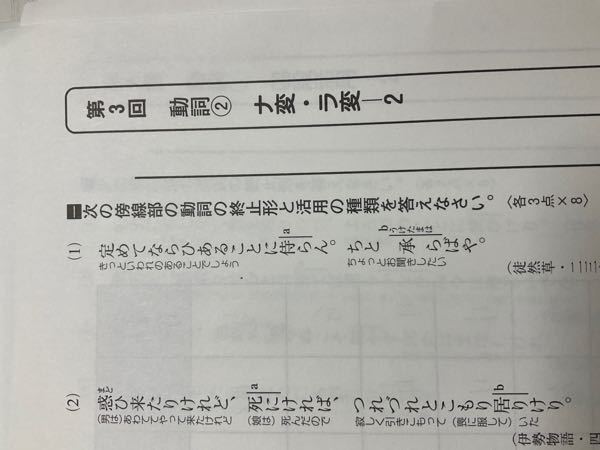 第3回 動詞② ナ変・ラ変―2
一 次の傍線部の動詞の終止形と活用の種類を答えなさい。〈各3点×8〉
(1) 定めてならひあることに侍らん。ちと承らばや。
a
b うけたまは
きっといわれのあることでしょう
ちょっとお聞きしたい
(徒然草・二三
(2) 惑ひ来たりけれど、死にければ、つれづれとこもり居りけり。
まど
a
b
(男は)あわててやって来たけれど
(娘は)死んだので
寂しく引きこもって(喪に服して)いた
(伊勢物語・四